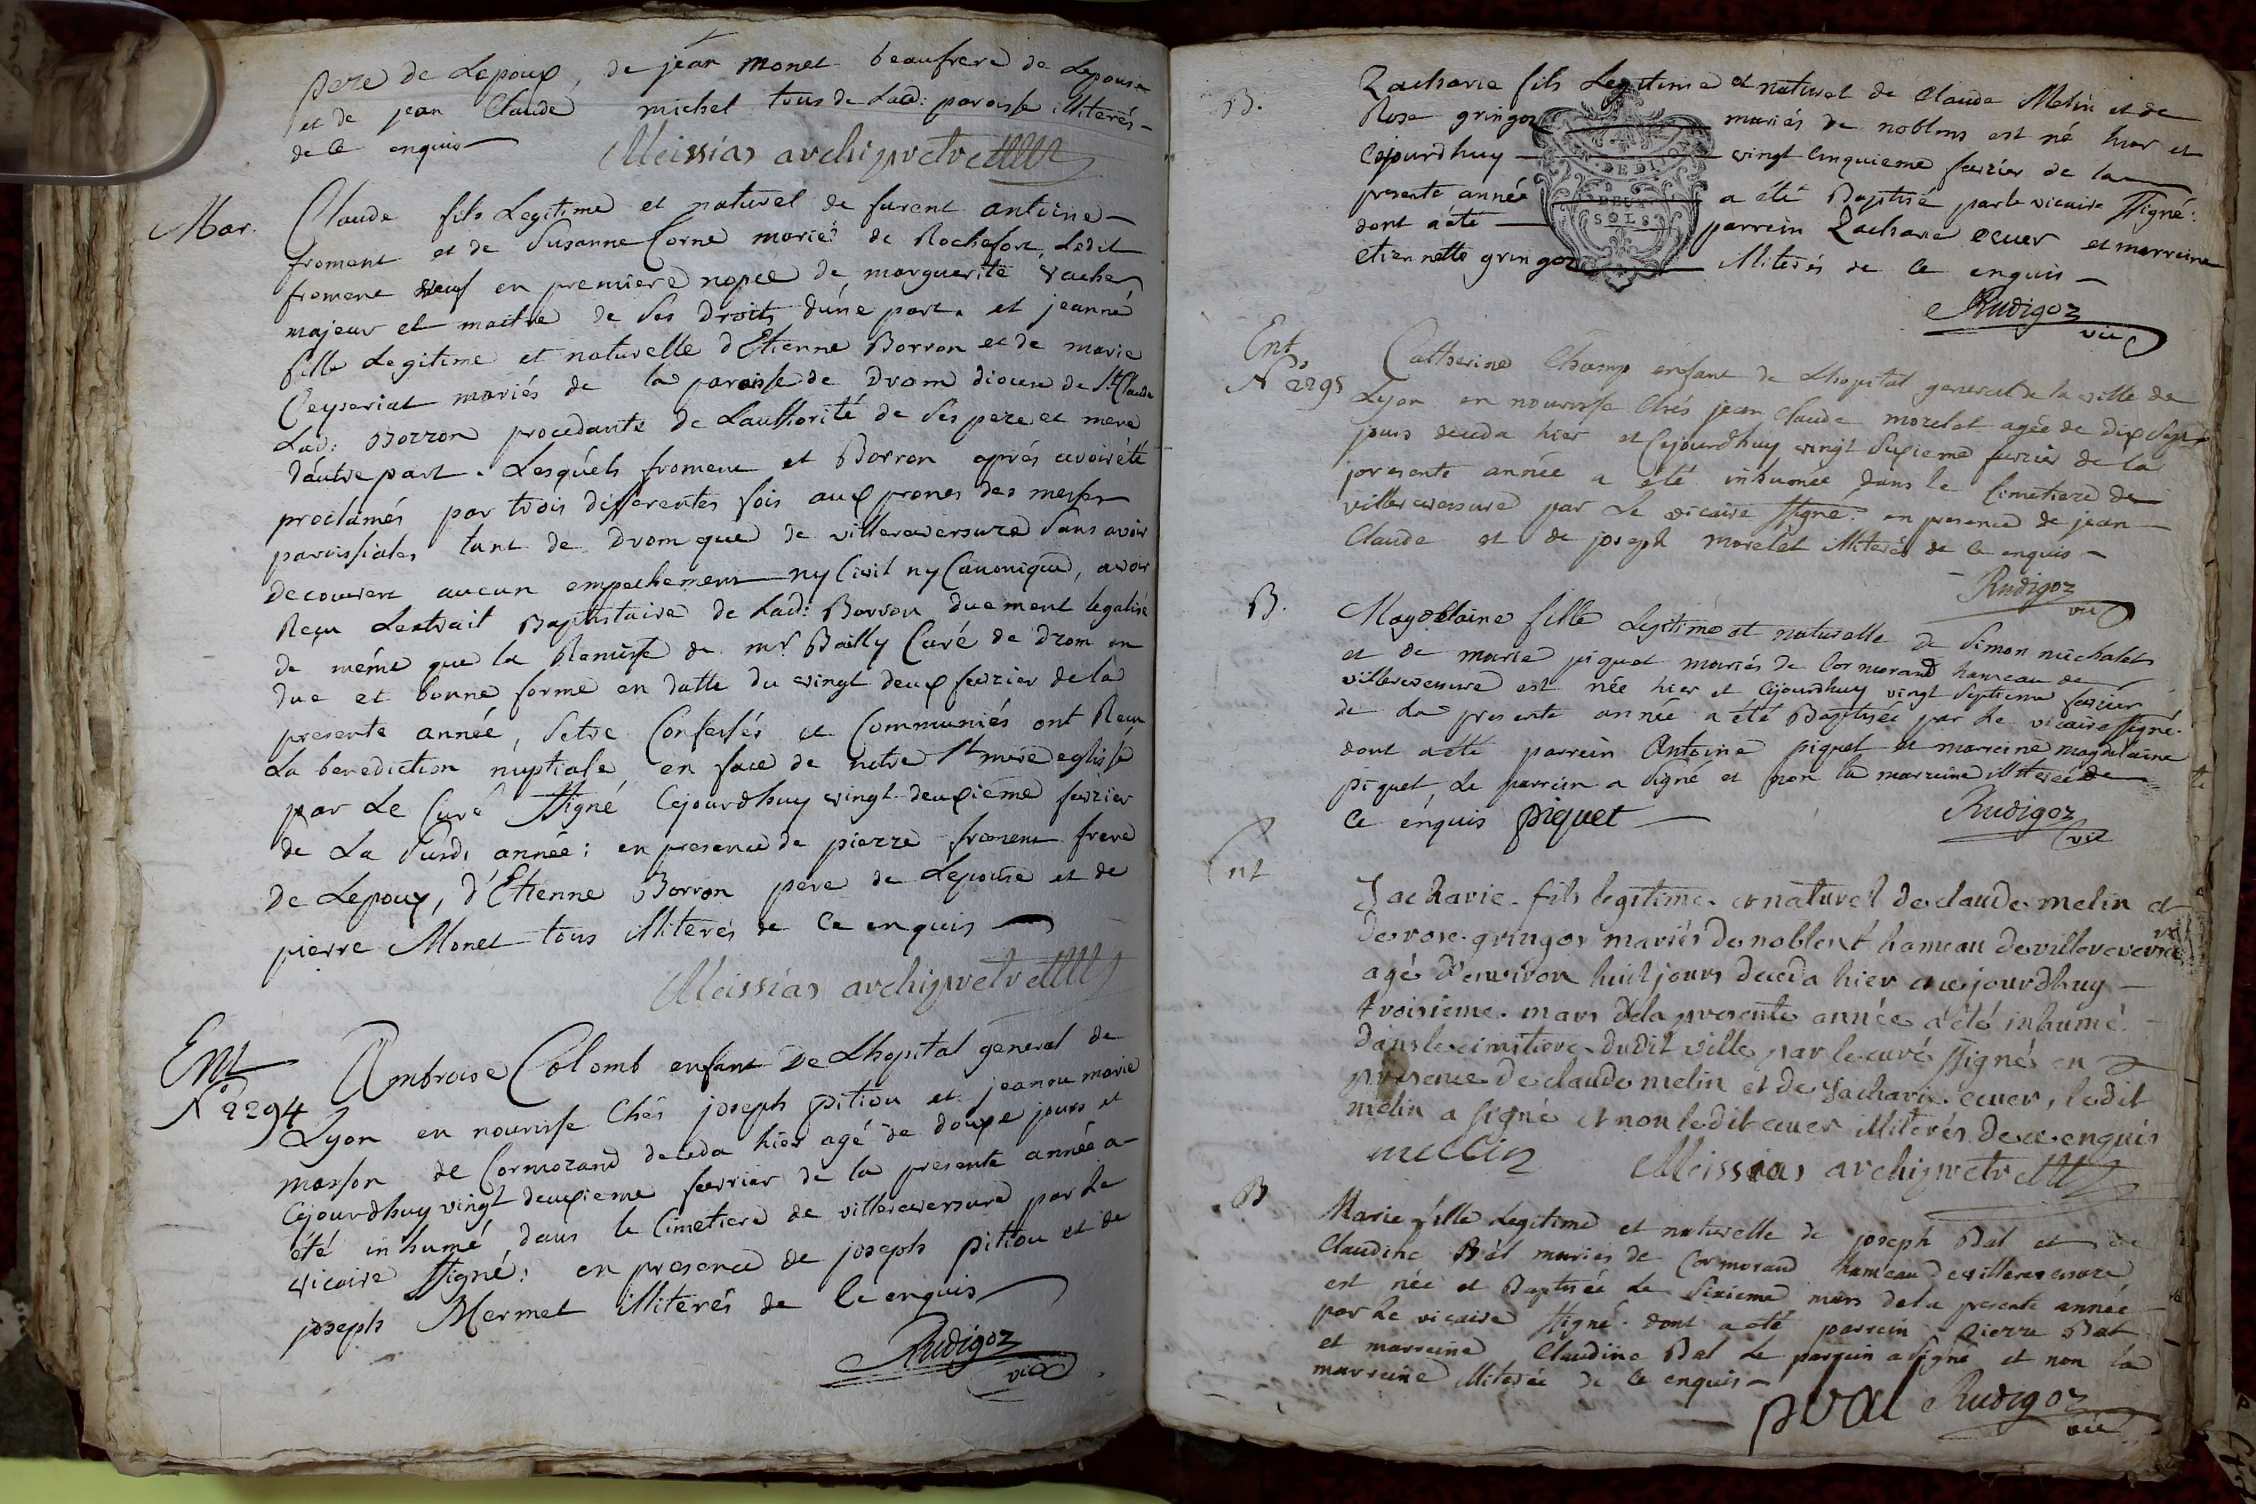 pere de Lepoux, de jean monet beaufrere de Lepouse
et de jean Claude michel tous de Lad: paroisse illiterés
de ce enquis
Meissias archipretre
Mar.
Claude fils Legitime et naturel de furent antoine
froment et de Susanne Corne mariés de Rochefort, Ledit
froment veuf en premiere nopce de marguerite vacher
majeur et maitre de ses droits d'une part. et jeanne
fille Legitime et naturelle d'Etienne Borron et de marie
Ceyseriat mariés de la paroisse de Drom diocese de St. Claude
Lad: Borron procedante de Lauthorité de ses pere et mere
d'autre part. Lesquels froment et Borron aprés avoir été
proclamés par trois differentes fois aux prones des messes
paroissiales tant de Drom que de villereversure sans avoir
decouvert aucun empechement ny Civil ny Canonique, avoir
Reçu Lextrait Baptistaire de Lad: Borron duement legalisé
de même que la Remisse de mr. Bailly Curé de Drom en
due et bonne forme en datte du vingt deux fevrier de la
presente année, Setre Confessés et Communiés ont Reçu
La benediction nuptiale en face de notre Ste mere eglise
par Le Curé ssigné Cejourdhuy vingt-deuxieme fevrier
de La susd: année: en presence de pierre froment frere
de Lepoux, d'Etienne Borron pere de Lepouse et de
pierre Monet tous illiterés de ce enquis
Meissias archipretre
Ent
No 2294
Ambroise Colomb enfant De Lhopital general de
Lyon en nourrisse Chés joseph pitiou et jeanne marie
masson de Cormorand deceda hier agé de douze jours et
Cejourdhuy vingt deuxieme fevrier de la presente année a
été inhumé dans le Cimetiere de villereversure par Le
vicaire ssigné: en presence de joseph pitiou et de
joseph Mermet illiterés de Ce enquis
Rudigoz
vic
B.
Zacharie fils Legitime et naturel de Claude Melin et de
Rose gringoz mariés de noblens est né hier et
Cejourdhuy vingt Cinquieme fevrier de la
presente année a été Baptisé par le vicaire ssigné:
dont a été parrein Zacharie ecuer et marreine
etiennette gringoz illiterés de Ce enquis
DE DIJON
DEUX
SOLS
Rudigoz
vic
Ent
No 2295
Catherine Champ enfant de Lhopital general de la ville de
Lyon en nourrisse Chés jean Claude morelet agée de dix sept
jours deceda hier et Cejourdhuy vingt Sixieme fevrier de la
presente année a été inhumée dans le Cimetiere de
villereversure par Le vicaire ssigné: en presence de jean
Claude et de joseph morelet illiterés de Ce enquis
Rudigoz
vic
B.
Magdelaine fille Legitime et naturelle de Simon michalet
et de marie piquet mariés de Cormorand hameau de
villereversure est née hier et Cejourdhuy vingt Septieme fevrier
de La presente année a été Baptisée par Le vicaire ssigné.
dont a été parrein Antoine piquet et marreine magdelaine
piquet, Le parrein a signé et non la marreine illiterée de
Ce enquis piquet
Rudigoz
vic
Ent
Zacharie fils legitime et naturel de claude melin et
de rose gringoz mariés de noblent hameau de villereversure
agé d'environ huit jours deceda hier et cejourdhuy
troisieme mars de la presente année a été inhumé
dans le cimetiere dudit ville par le curé ssigné en
presence de claude melin et de zacharie ecuer, ledit
melin a signé et non ledit ecuer illiterés de ce enquis
mellin Meissias archipretre
B
Marie fille Legitime et naturelle de joseph Bal et de
Claudine Bal mariés de Cormorand hameau de villereversure
est née et Baptisée Le Sixieme mars de la presente année
par Le vicaire ssigné: dont a été parrein pierre Bal
et marreine Claudine Bal Le parrein a signé et non la
marreine illiterée de Ce enquis
p val Rudigoz
vic